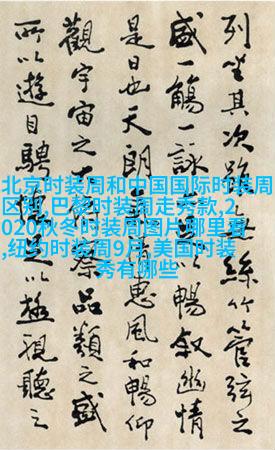 北京时装周和中国国际时装周
区别,巴黎时装周走秀款,2
020秋冬时装周图片哪里看
,纽约时装周9月,美国时装
秀有哪些
列坐其次雖絲竹管弦之
盛一觴一詠以暢敘幽情
是日也天朗清惠風和暢仰
觀宇宙之大察品類之盛
所以遊目騁足以極視聽之